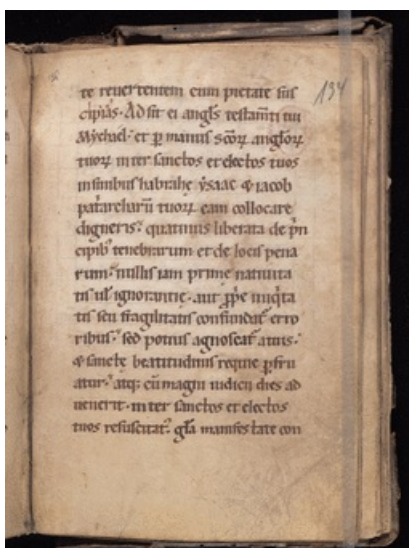 134
te reuertentem cum pietate sus
cipias. Adsit ei angls testamti tui
Mychael. et p manus scorꝝ anglorꝝ
tuorꝝ inter sanctos et electos tuos
insinibus habrahe ysaac & iacob
patriarcharū tuorꝝ eam collocare
digneris. quatinus liberata de prin
cipib' tenebrarum et de locis pena
rum. nullis iam prime natiuita
tis ul ignorantie. aut pprie iniqta
tis seu fragilitatis confundat erro
ribus. sed potius agnoscat a tuis.
& sancte beatitudinis requie pfru
atur. atq; cū magni iudicii dies ad
uenerit. inter sanctos et electos
tuos resuscitat. gla manifestate con